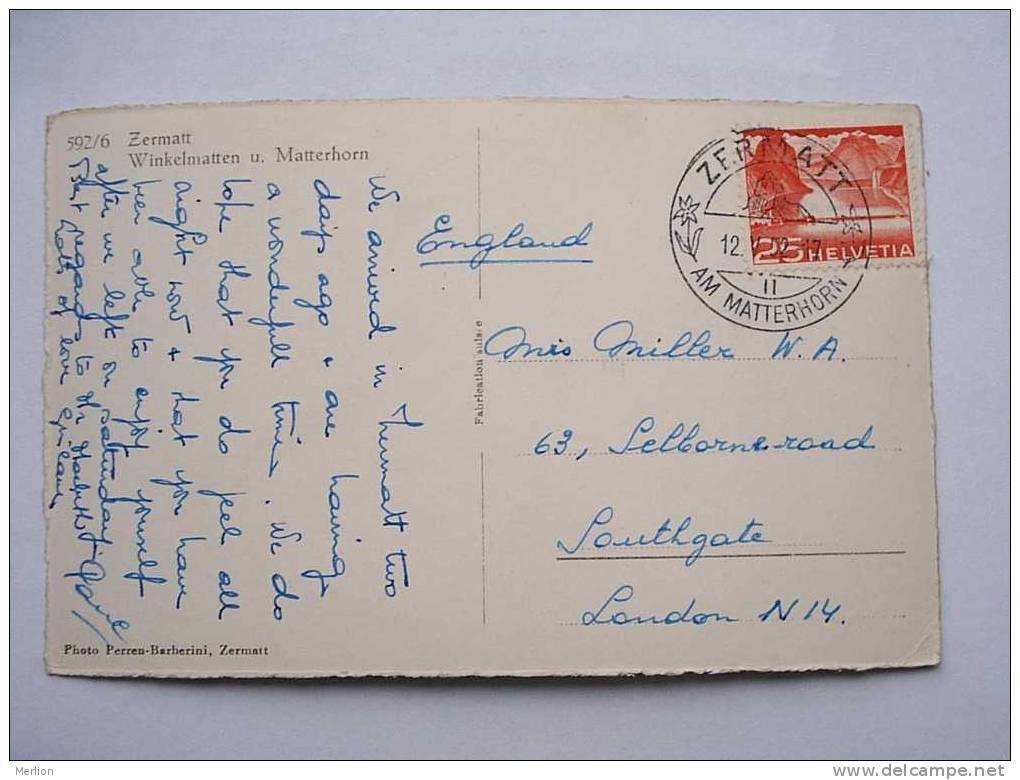 592/6 Zermatt
Winkelmatten u. Matterhorn
We arrived in Zermatt two
days ago & are having
a wonderfull time. We do
hope that you do feel all
right now & that you have
been able to enjoy yourself
after we left on saturday.
Best regards to
Lots of love
Photo Perren-Barberini, Zermatt
Fabrication suisse
England
ZERMATT
12. V. 52 -17
II
AM MATTERHORN
25 HELVETIA
Miss Miller W. A.
63, Selborne-road
Southgate
London N14.
Merlion
www.delcampe.net